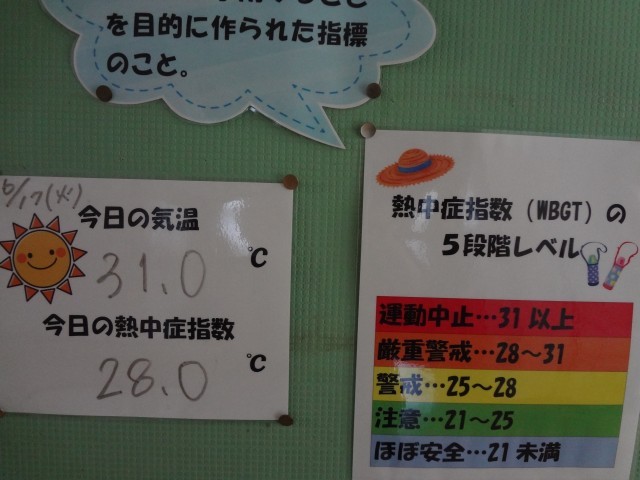 を目的に作られた指標
のこと。
6/17(火)
今日の気温
31.0 ℃
今日の熱中症指数
28.0 ℃
熱中症指数（WBGT）の
５段階レベル
運動中止…31以上
厳重警戒…28～31
警戒…25～28
注意…21～25
ほぼ安全…21未満